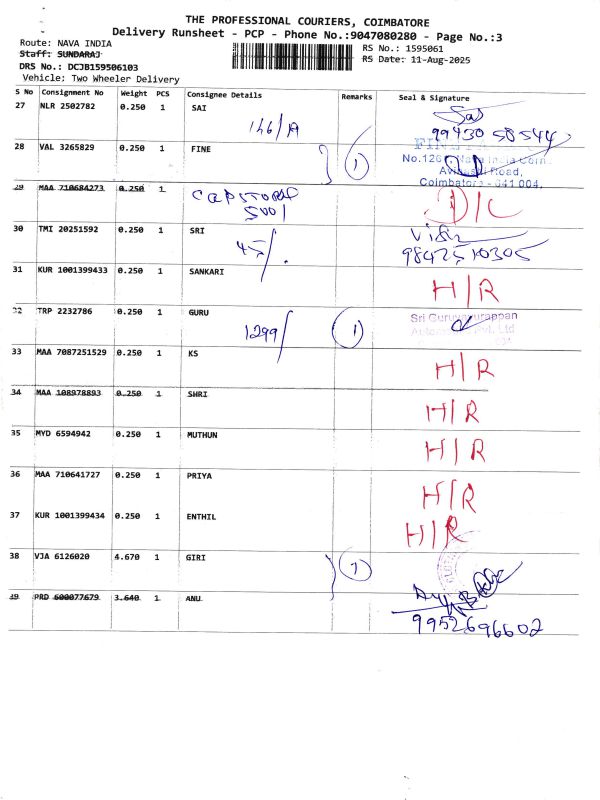 THE PROFESSIONAL COURIERS, COIMBATORE
Delivery Runsheet - PCP - Phone No.:9047080280 - Page No.:3
Route: NAVA INDIA
RS No.: 1595061
Staff: SUNDARAJ
RS Date: 11-Aug-2025
DRS No.: DCJB159506103
Vehicle: Two Wheeler Delivery
S No Consignment No Weight PCS Consignee Details Remarks Seal & Signature
27 NLR 2502782 0.250 1 SAI
146/A
99430 58544
28 VAL 3265829 0.250 1 FINE
1
No.126
Road,
Coimbatore - 641 004.
29 MAA 710684273 0.250 1
5001
D/C
30 TMI 20251592 0.250 1 SRI
45/.
9842510305
31 KUR 1001399433 0.250 1 SANKARI
H/R
32 TRP 2232786 0.250 1 GURU
1299/
1
Sri Guruvayurappan
Ltd
33 MAA 7087251529 0.250 1 KS
H/R
34 MAA 108978893 0.250 1 SHRI
H/R
35 MYD 6594942 0.250 1 MUTHUN
H/R
36 MAA 710641727 0.250 1 PRIYA
H/R
37 KUR 1001399434 0.250 1 ENTHIL
H/R
38 VJA 6126020 4.670 1 GIRI
39 PRD 600077679 3.640 1 ANU
9952696602